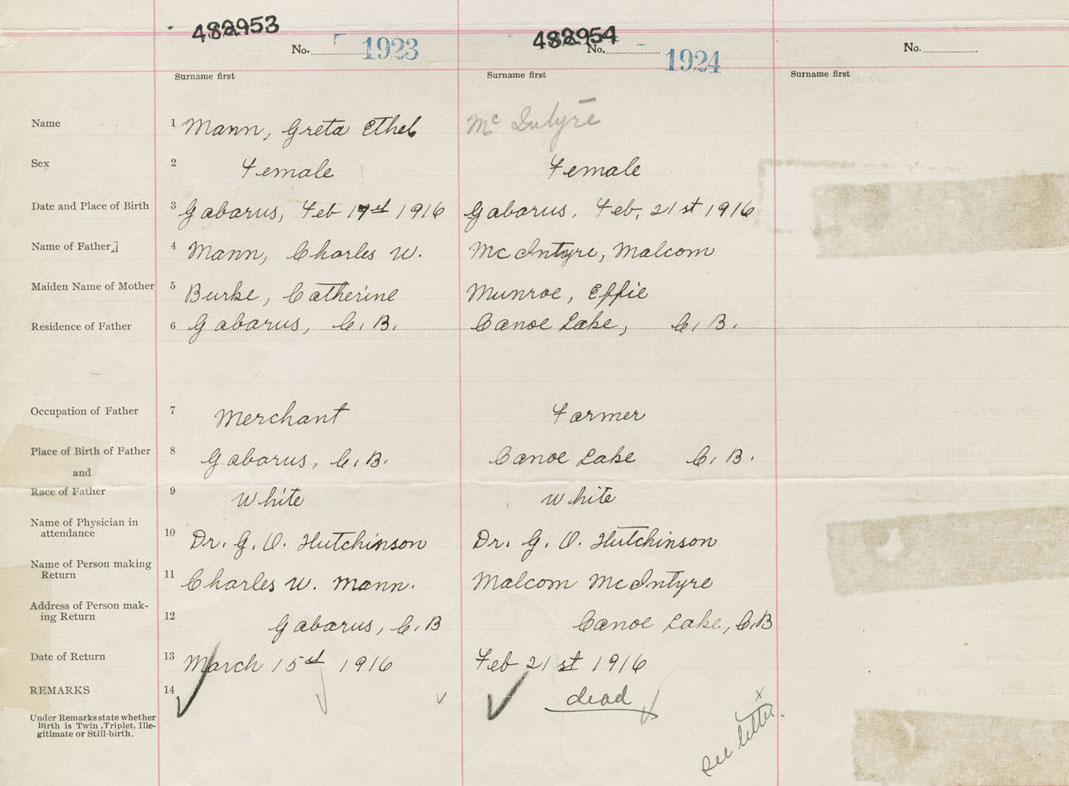 482953
482954
No. 1923
No. 1924
No.
Surname first
Surname first
Surname first
Name 1 Mann, Greta Ethel Mc Intyre
Sex 2 Female Female
Date and Place of Birth 3 Gabarus, Feb 17th 1916 Gabarus. Feb, 21st 1916
Name of Father 4 Mann, Charles W. McIntyre, Malcom
Maiden Name of Mother 5 Burke, Catherine Munroe, Effie
Residence of Father 6 Gabarus, C. B. Canoe Lake, C. B.
Occupation of Father 7 Merchant Farmer
Place of Birth of Father 8 Gabarus, C. B. Canoe Lake C. B.
and
Race of Father 9 White White
Name of Physician in
attendance 10 Dr. G. O. Hutchinson Dr. G. O. Hutchinson
Name of Person making
Return 11 Charles W. Mann. Malcom McIntyre
Address of Person mak-
ing Return 12 Gabarus, C. B Canoe Lake, C.B
Date of Return 13 March 15st 1916 Feb 21st 1916
REMARKS 14 dead
Under Remarks state whether
Birth is Twin, Triplet, Ille-
gitimate or Still-birth.
x
see letter.